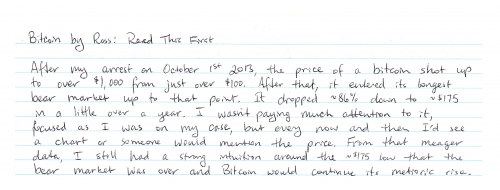 Bitcoin by Ross: Read This First
After my arrest on October 1st 2013, the price of a bitcoin shot up
to over $1,000 from just over $100. After that, it entered its longest
bear market up to that point. It dropped ~86% down to ~$175
in a little over a year. I wasn't paying much attention to it,
focused as I was on my case, but every now and then I'd see
a chart or someone would mention the price. From that meager
data, I still had a strong intuition around the ~$175 low that the
bear market was over and Bitcoin would continue its meteoric rise.